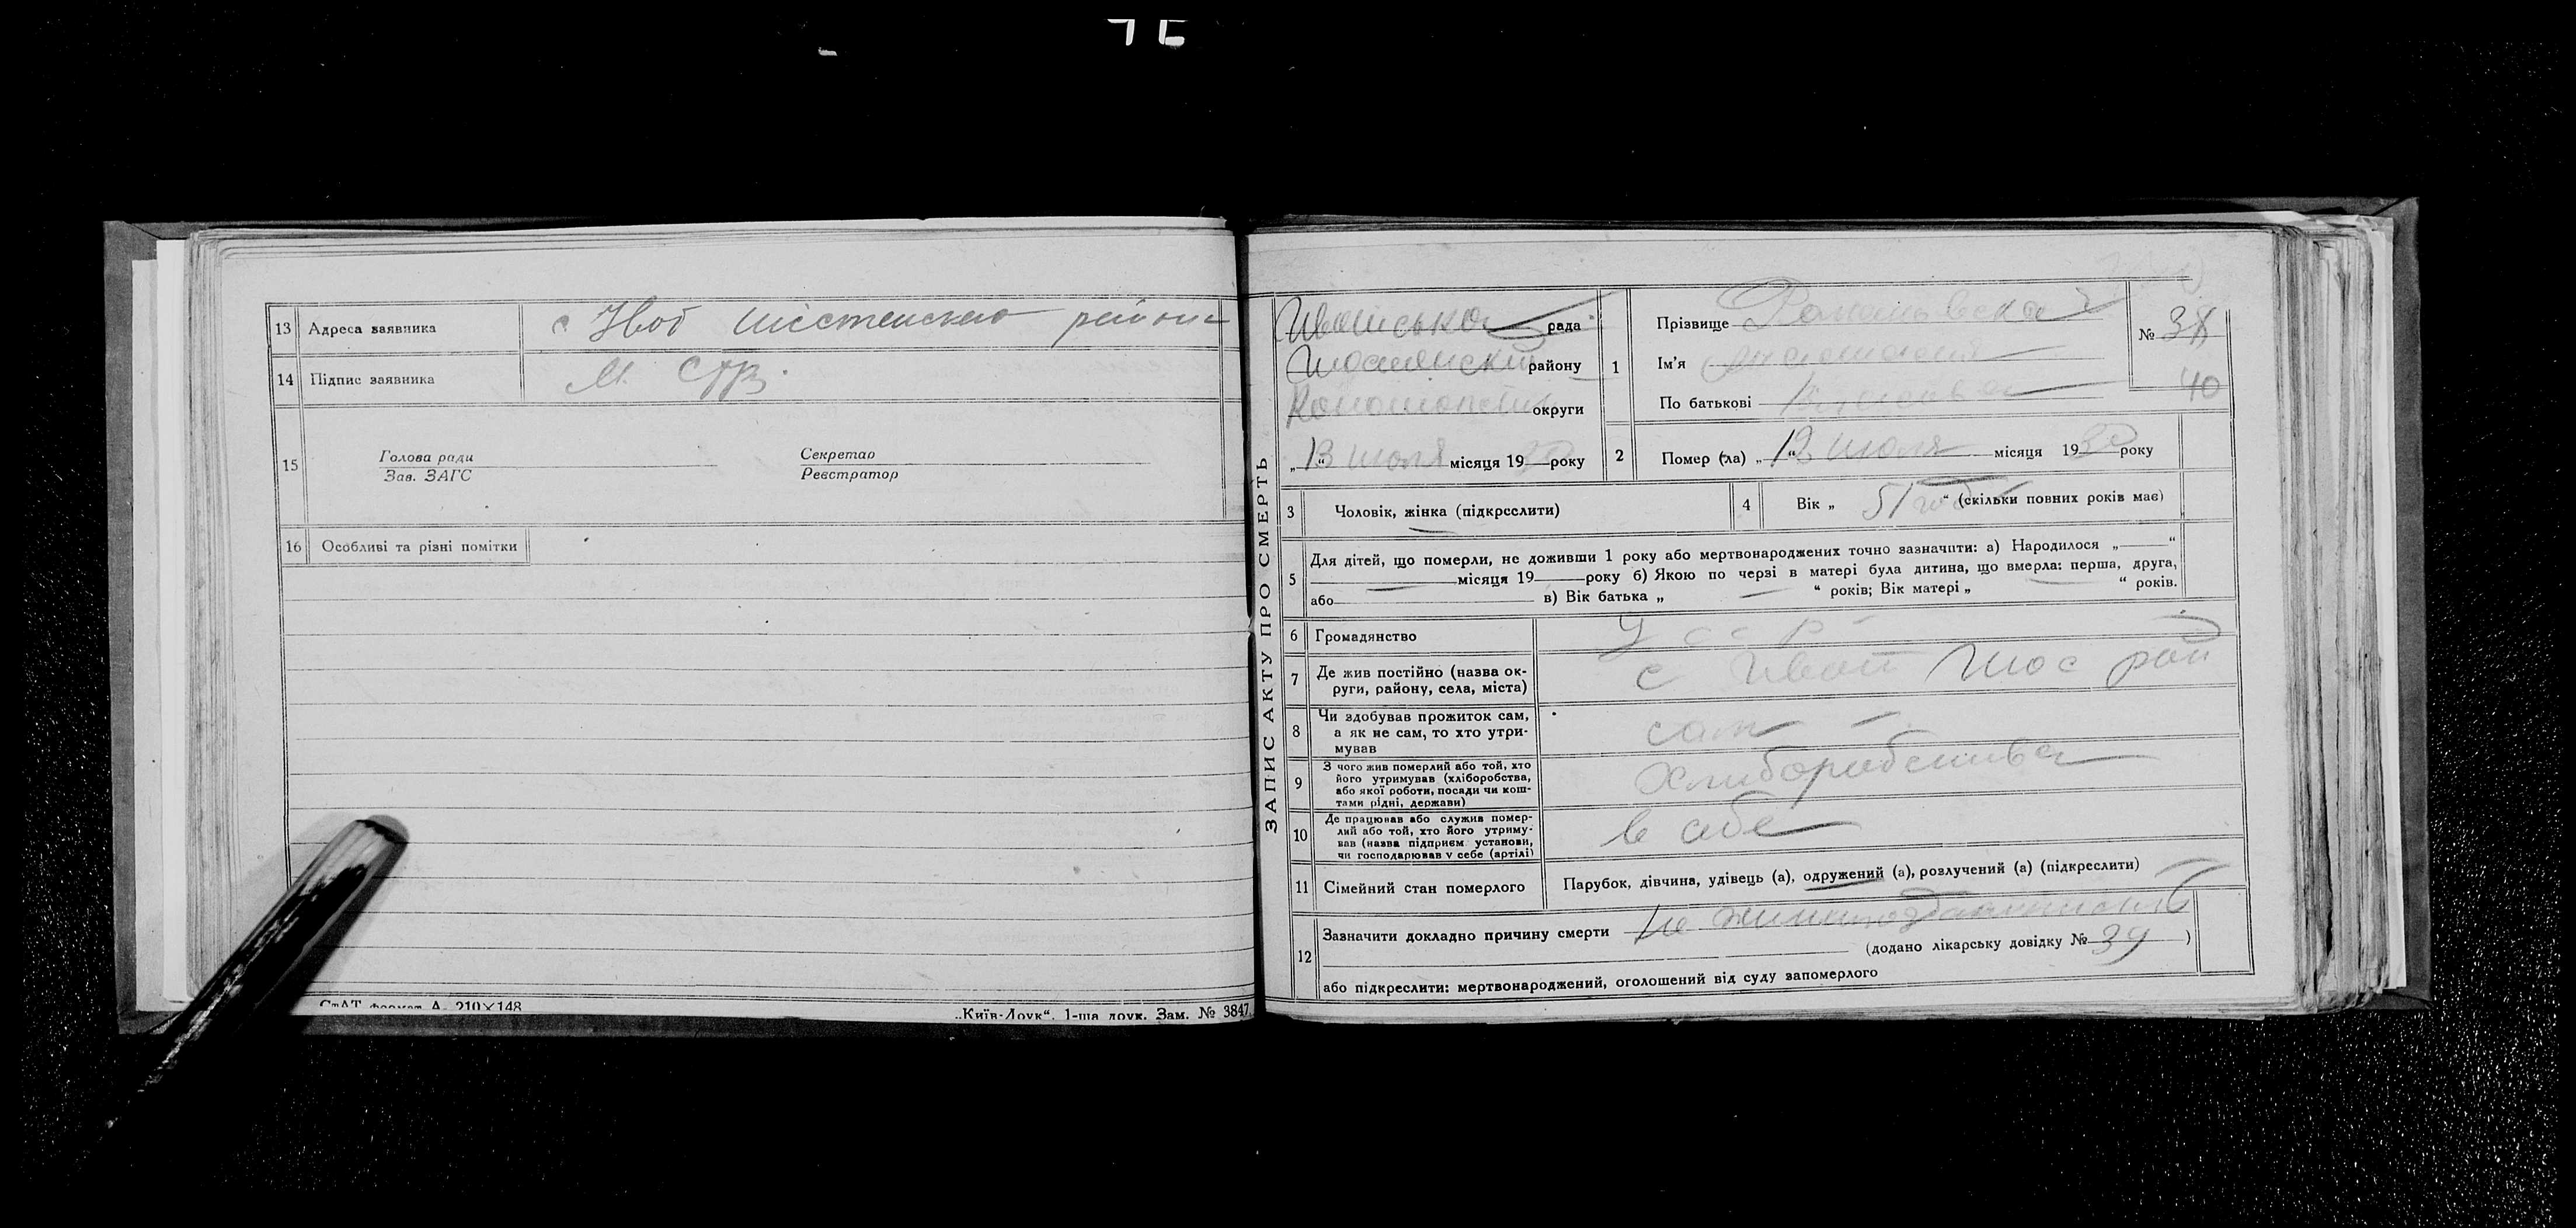 13 Адреса заявника с района
14 Підпис заявника М.
15
Голова ради Секретар
Зав. ЗАГС Реєстратор
16 Особливі та різні помітки
СтАТ формат А. 210×148
„Київ-Друк“. 1-ша друк. Зам. № 3847
ЗАПИС АКТУ ПРО СМЕРТЬ
рада
району
округи
„13“ июля місяця 1930 року
1 Прізвище
Ім'я
По батькові
№ 38
40
2 Помер (ла) „12“ июля місяця 1930 року
3 Чоловік, жінка (підкреслити)
4 Вік „51 год“ (скільки повних років має)
5 Для дітей, що померли, не доживши 1 року або мертвонароджених точно зазначити: а) Народилося „ “
місяця 19 року б) Якою по черзі в матері була дитина, що вмерла: перша, друга,
або в) Вік батька „ “ років; Вік матері „ “ років.
6 Громадянство УССР
7 Де жив постійно (назва ок-
руги, району, села, міста) с Ивот Шос рай
8 Чи здобував прожиток сам,
а як не сам, то хто утри-
мував сам
9 З чого жив померлий або той, хто
його утримував (хліборобства,
або якої роботи, посади чи кош-
тами рідні, держави)
10 Де працював або служив помер-
лий або той, хто його утриму-
вав (назва підприєм. установи,
чи господарював у себе (артілі) в себе
11 Сімейний стан померлого Парубок, дівчина, удівець (а), одружений (а), розлучений (а) (підкреслити)
12 Зазначити докладно причину смерти
(додано лікарську довідку № 39 )
або підкреслити: мертвонароджений, оголошений від суду запомерлого